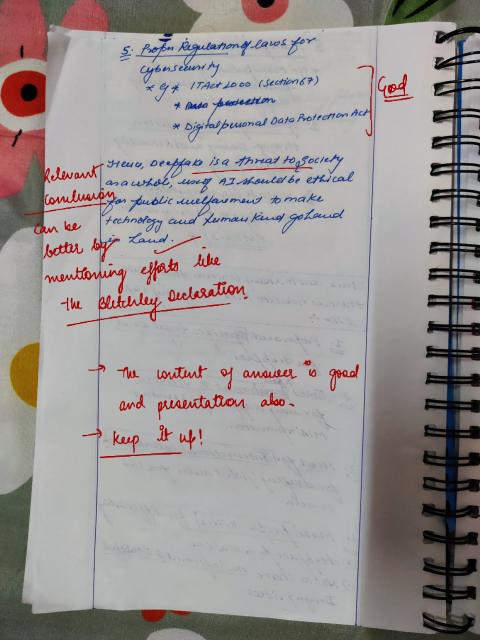 5. Proper Regulation of laws for
Cybersecurity
* eg * IT Act 2000 (Section 67)
* Data protection
* Digital personal Data Protection Act
Good
Hence, Deepfake is a threat to society
as a whole, use of AI should be ethical
for public welfare to make
technology and human kind go hand
in hand.
Relevant
Conclusion
can be
better by
mentioning efforts like
The Bletchley Declaration.
→ The content of answer is good
and presentation also.
→ Keep it up!